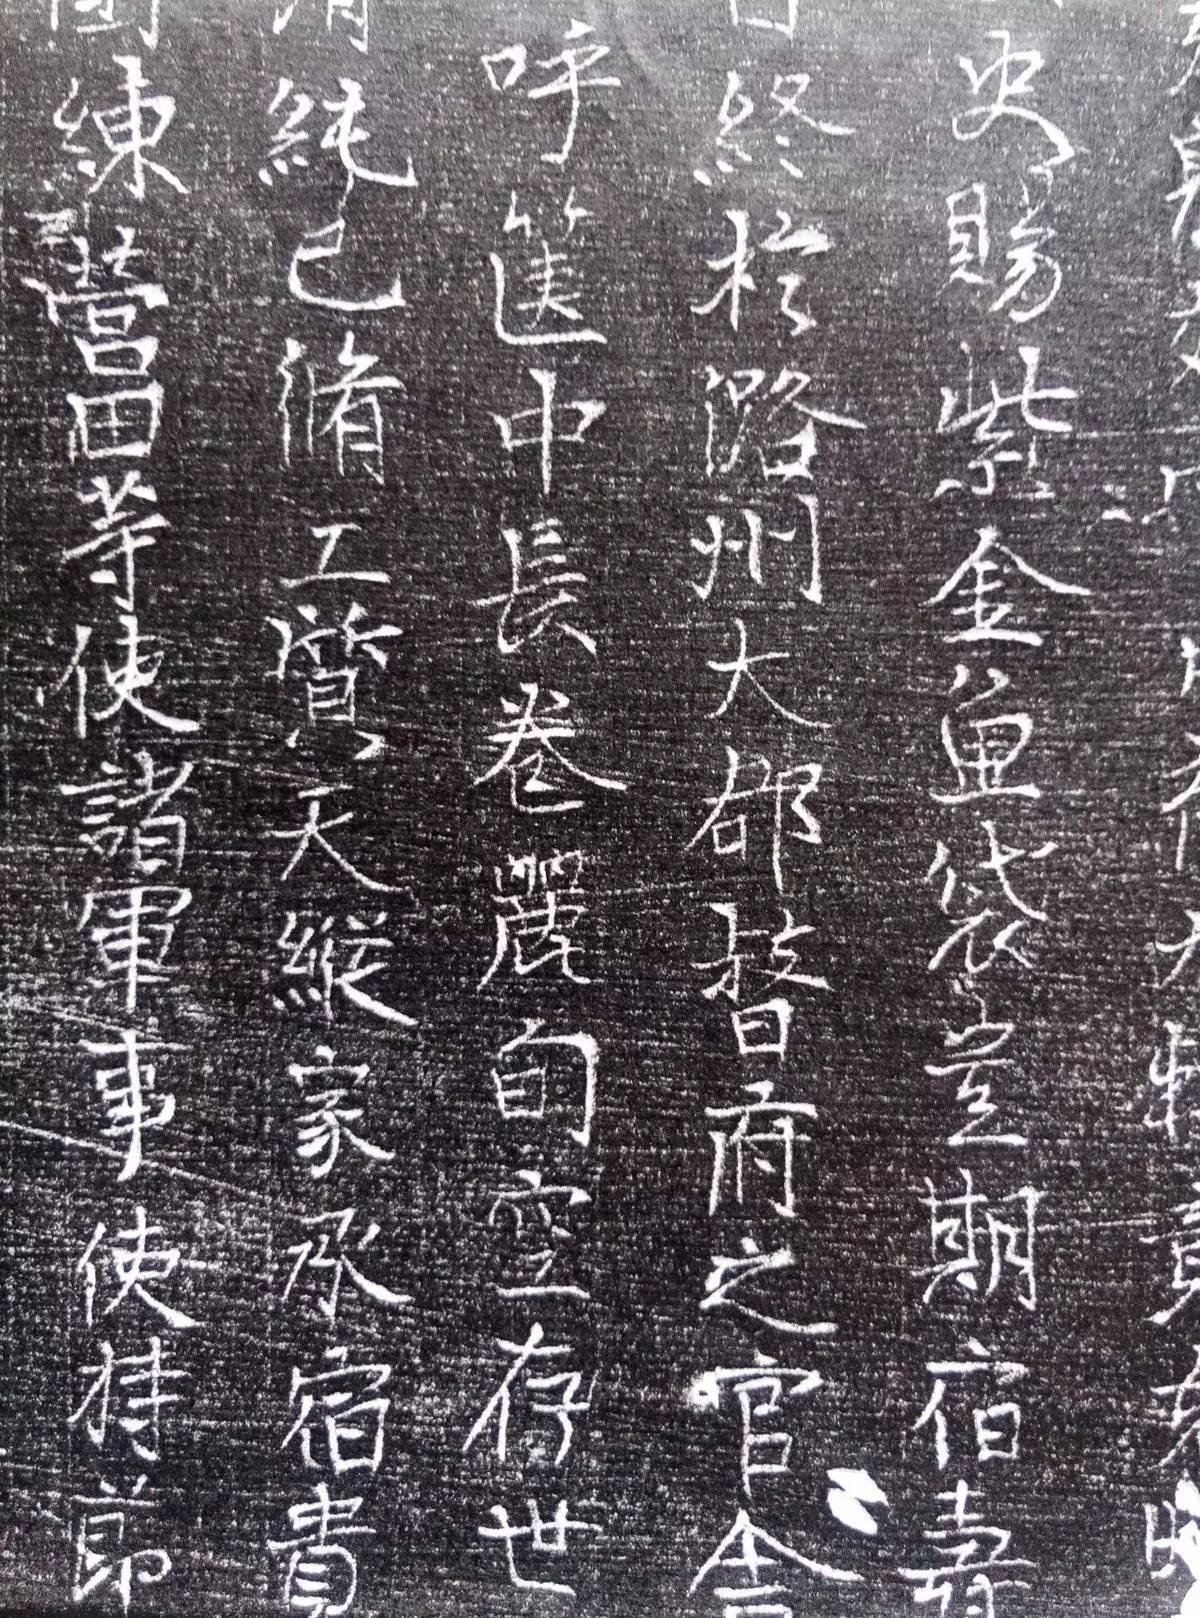 史賜紫金魚袋豈期宿壽
終於潞州大都督府之官舍
呼篋中長卷麗句空存世
純已脩工賀天縱家承宿貴
團練營田等使諸軍事使持節